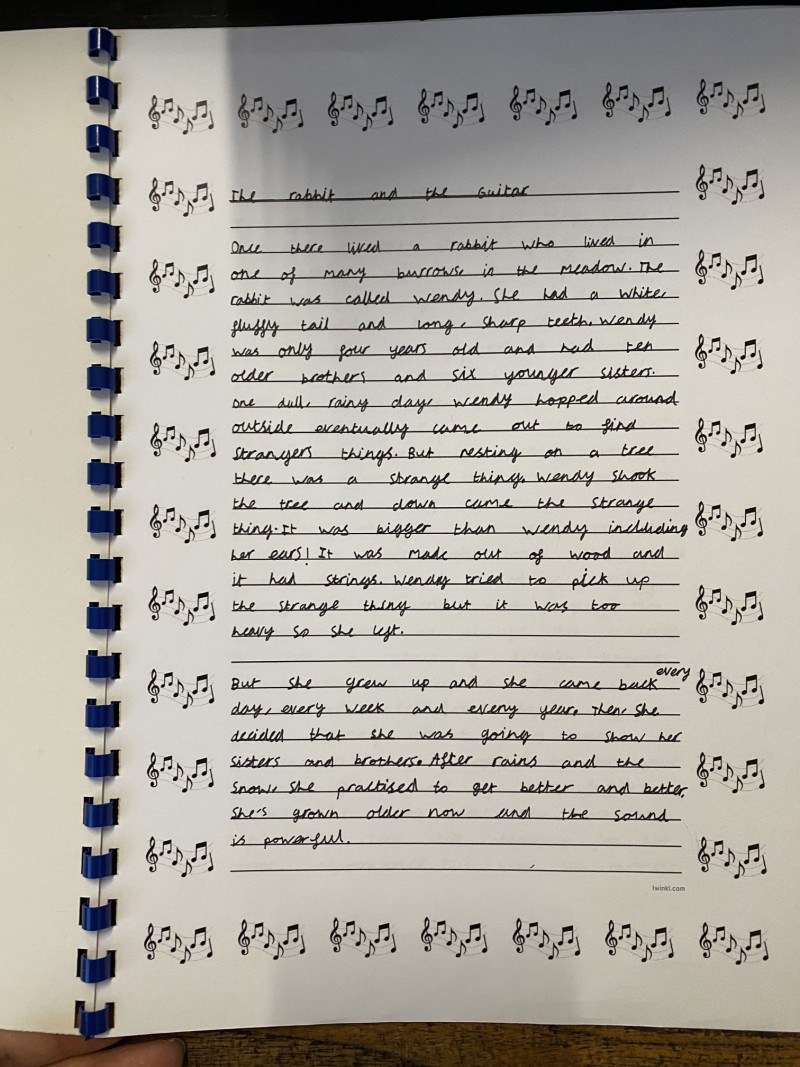 The rabbit and the Guitar
Once there lived a rabbit who lived in
one of many burrows, in the meadow. The
rabbit was called Wendy. She had a white,
fluffy tail and long, sharp teeth. Wendy
was only four years old and had ten
older brothers and six younger sisters.
One dull, rainy day, Wendy hopped around
outside eventually came out to find
strangers things. But resting on a tree
there was a strange thing. Wendy shook
the tree and down came the strange
thing. It was bigger than Wendy inclduding
her ears! It was made out of wood and
it had strings. Wendy tried to pick up
the strange thing but it was too
heavy so she left.
But she grew up and she came back every
day, every week and every year. Then, she
decided that she was going to show her
sisters and brothers. After rains and the
snow, she practised to get better and better,
She's grown older now and the sound
is powerful.
twinkl.com